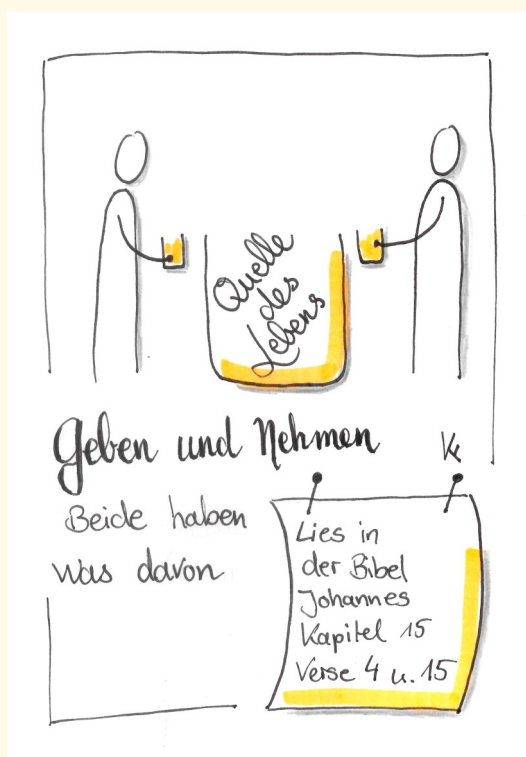 Quelle
des
Lebens
Geben und Nehmen
Beide haben
was davon
Lies in
der Bibel
Johannes
Kapitel 15
Verse 4 u. 15